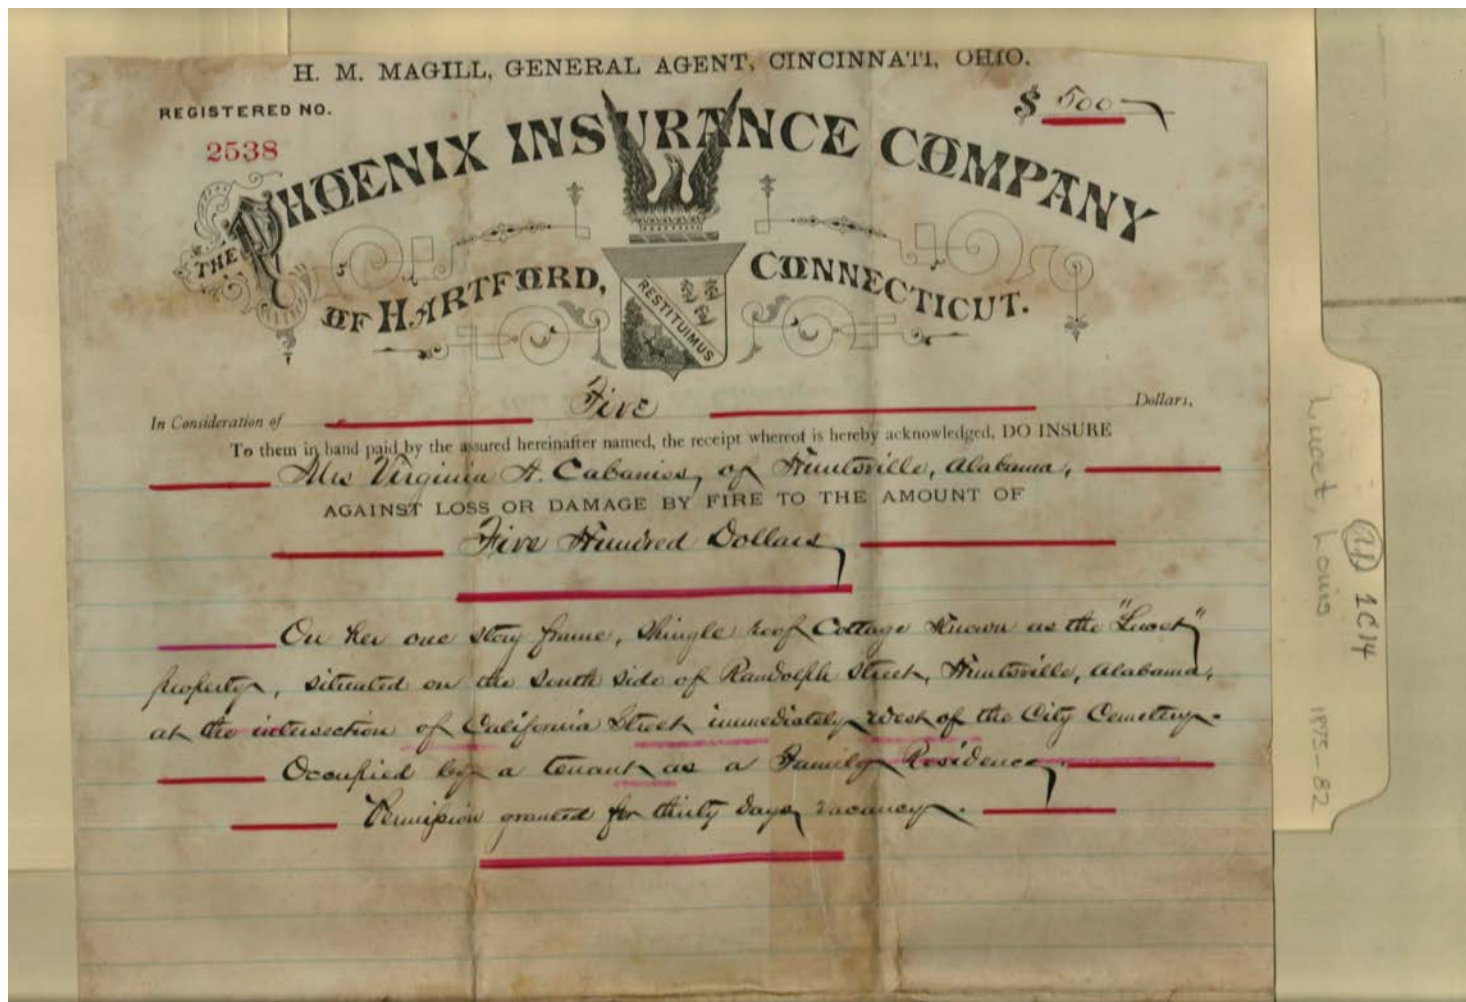 H. M. MAGILL, GENERAL AGENT, CINCINNATI, OHIO.
REGISTERED NO.
$ 500
2538
THE PHOENIX INSURANCE COMPANY
OF HARTFORD, CONNECTICUT.
RESTITUIMUS
In Consideration of Five Dollars,
To them in hand paid by the assured hereinafter named, the receipt whereof is hereby acknowledged, DO INSURE
Mrs Virginia A. Cabaniss, of Huntsville, Alabama,
AGAINST LOSS OR DAMAGE BY FIRE TO THE AMOUNT OF
Five Hundred Dollars
On her one story frame, shingle roof Cottage Known as the "Lucet"
property, situated on the South side of Randolph Street, Huntsville, Alabama,
at the intersection of California Street immediately West of the City Cemetery.
Occupied by a tenant as a Family Residence,
Permission granted for thirty days vacancy.
Lucet, Louis
1C14
1875-82